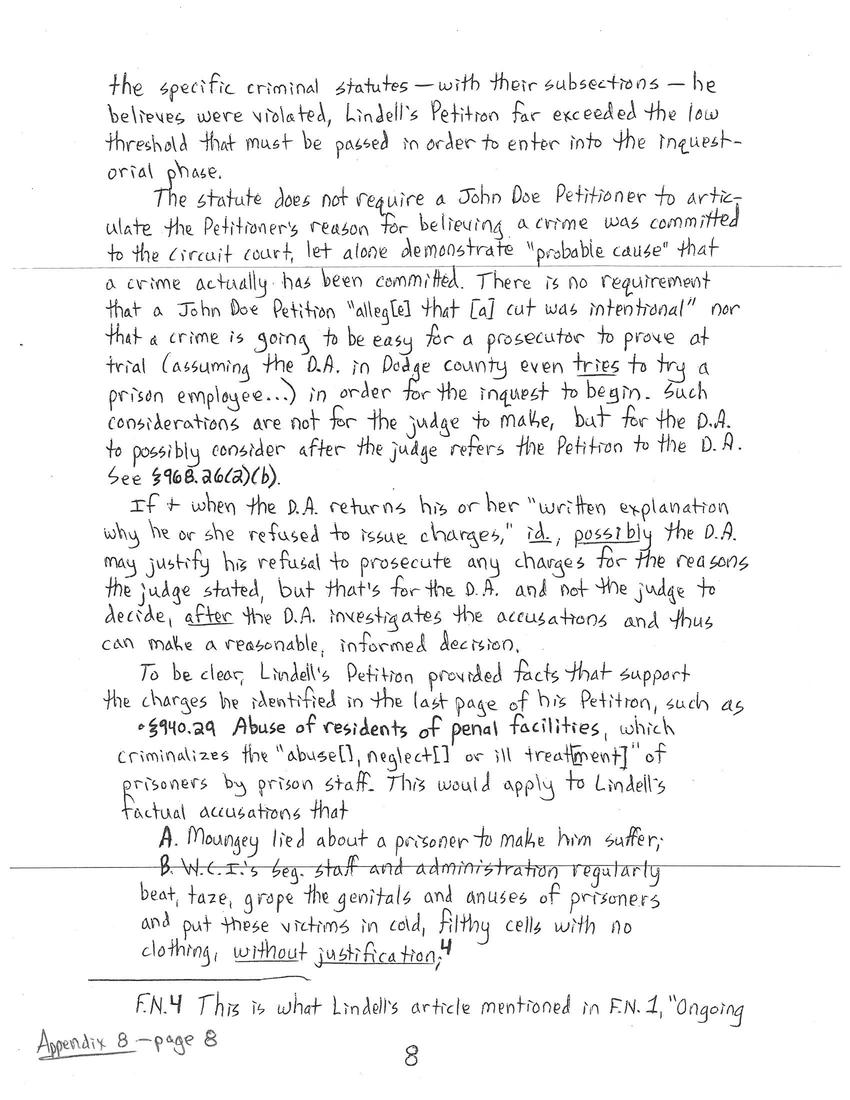 the specific criminal statutes — with their subsections — he
believes were violated, Lindell's Petition far exceeded the low
threshold that must be passed in order to enter into the inquest-
orial phase.
The statute does not require a John Doe Petitioner to artic-
ulate the Petitioner's reason for believing a crime was committed
to the circuit court, let alone demonstrate "probable cause" that
a crime actually has been committed. There is no requirement
that a John Doe Petition "alleg[e] that [a] cut was intentional" nor
that a crime is going to be easy for a prosecutor to prove at
trial (assuming the D.A. in Dodge county even tries to try a
prison employee...) in order for the inquest to begin. Such
considerations are not for the judge to make, but for the D.A.
to possibly consider after the judge refers the Petition to the D.A.
See §968.26(2)(b).
If + when the D.A. returns his or her "written explanation
why he or she refused to issue charges," id., possibly the D.A.
may justify his refusal to prosecute any charges for the reasons
the judge stated, but that's for the D.A. and not the judge to
decide, after the D.A. investigates the accusations and thus
can make a reasonable, informed decision.
To be clear, Lindell's Petition provided facts that support
the charges he identified in the last page of his Petition, such as
•§940.29 Abuse of residents of penal facilities, which
criminalizes the "abuse[], neglect[] or ill treat[ment]" of
prisoners by prison staff. This would apply to Lindell's
factual accusations that
A. Moungey lied about a prisoner to make him suffer;
B. W.C.I.'s seg. staff and administration regularly
beat, taze, grope the genitals and anuses of prisoners
and put these victims in cold, filthy cells with no
clothing, without justification;4
F.N.4 This is what Lindell's article mentioned in F.N. 1, "Ongoing
Appendix 8 - page 8
8